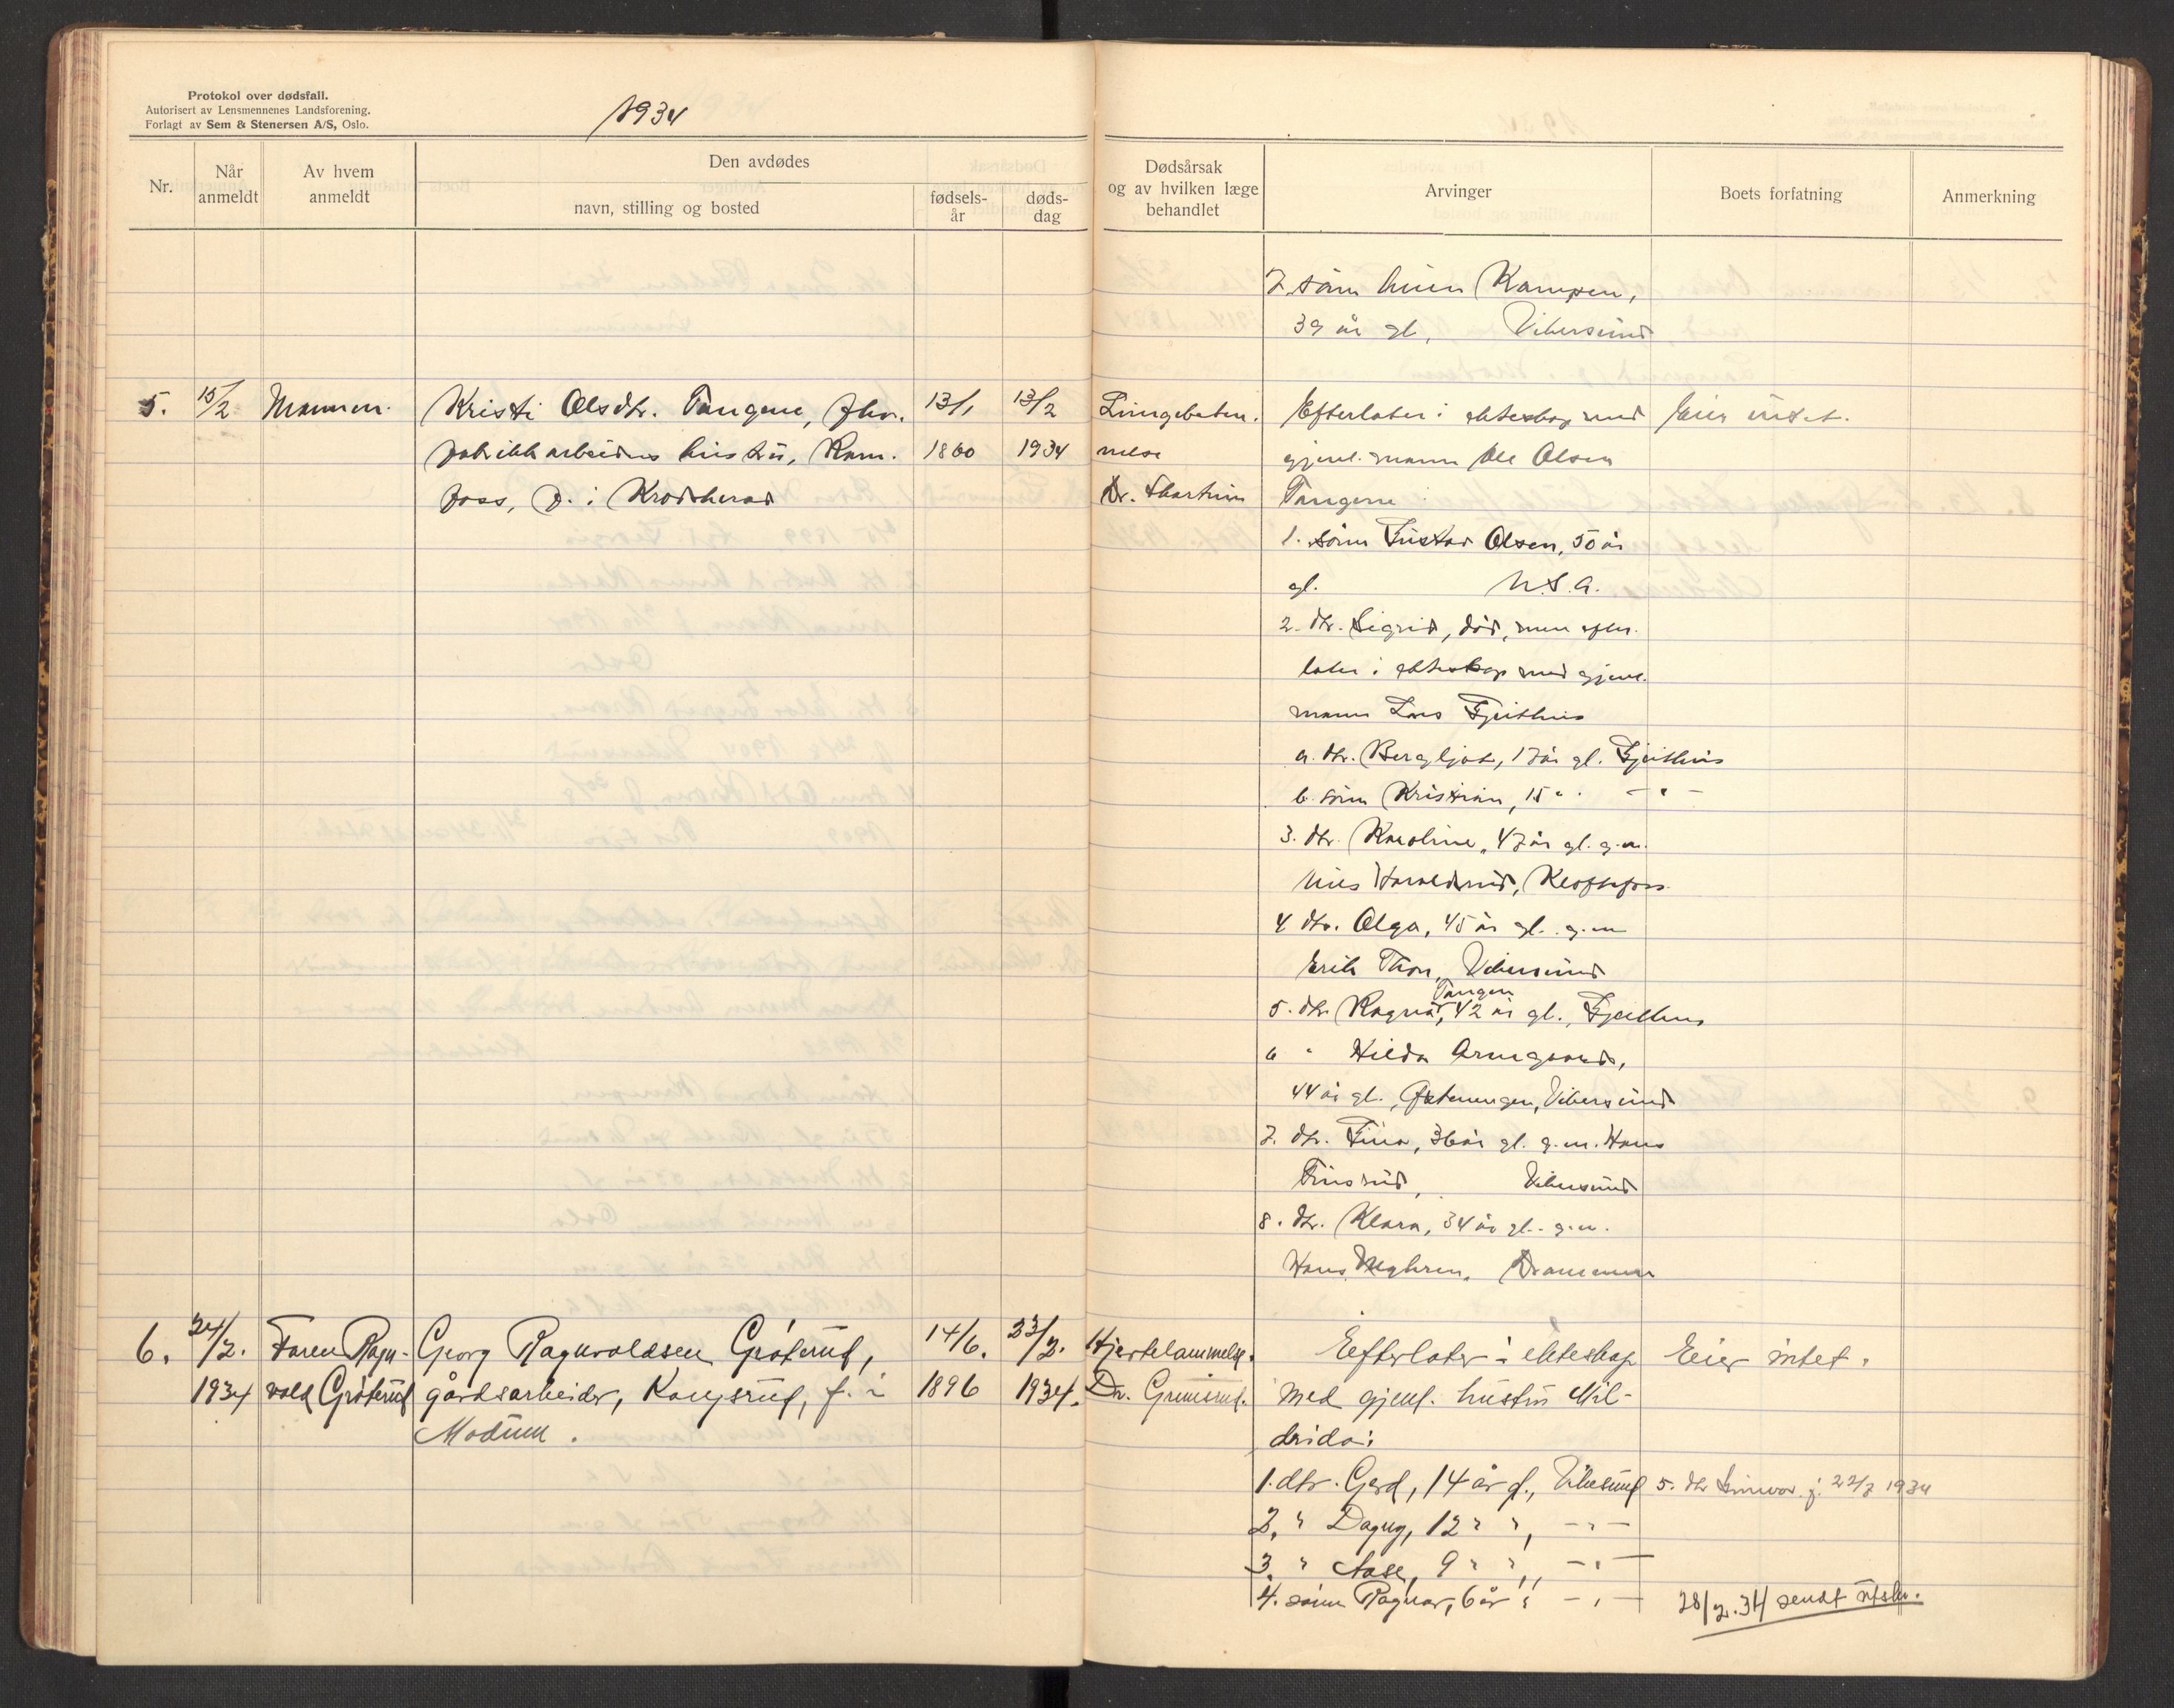 Protokol over dødsfall.
Autorisert av Lensmennenes Landsforening.
Forlagt av Sem & Stenersen A/S, Oslo.
1934
Nr.
Når anmeldt
Av hvem anmeldt
Den avdødes
navn, stilling og bosted
fødsels-år
døds-dag
Dødsårsak og av hvilken læge behandlet
Arvinger
Boets forfatning
Anmerkning
7. sønn Kampen,
39 år gl., Vikersund
5. 15/2 Mannen. Kristi Olsdtr. Tangene, fhv. 13/1 13/2 Lungebeten- Efterlater i ekteskap med Eier intet.
fabrikkarbeiders hustru, Ram- 1860 1934 nelse gjenl. mann Ole Olsen
foss, f. i Krødsherad Dr. Thartun Tangene
1. sønn Gustav Olsen, 50 år
gl. U.S.A.
2. dtr. Sigrid, død, men efter-
later i ekteskap med gjenl.
mann Lars Gjeithus
a. dtr. Bergljot, 17 år gl. Gjeithus
b. sønn Kristian, 15 " " — " —
3. dtr. Karoline, 47 år gl. g.m.
Nils Haraldsrud, Kloftefoss
4 dtr. Olga, 45 år gl. g.m
Erik Thon, Vikersund
Tangen
5. dtr. Ragna, 42 år gl., Gjeithus
6 " Hilda
44 år gl., Vikersund
7. dtr. Tina, 36 år gl. g.m. Hans
Finsrud, Vikersund
8. dtr. Klara, 34 år gl. g.m.
Hans Drammen
6. 24/2. Faren Ragn- Georg Ragnvoldsen Grøterud, 14/6. 23/2. Hjertelammelse. Eefterlater i ekteskap Eier intet.
1934 vold Grøterud gårdsarbeider, Kongsrud, f. i 1896 1934. Dr. Grimsrud. med gjenl. hustru Mil-
Modum. drida:
1. dtr. Gerd, 14 år gl., Vikesund 5. dtr f. 22/7 1934
2. " Dagny, 12 " ", — " —
3. " Aase, 9 " ", — " —
4. sønn Ragnar, 6 år " — " — 28/2.34 sendt utskr.